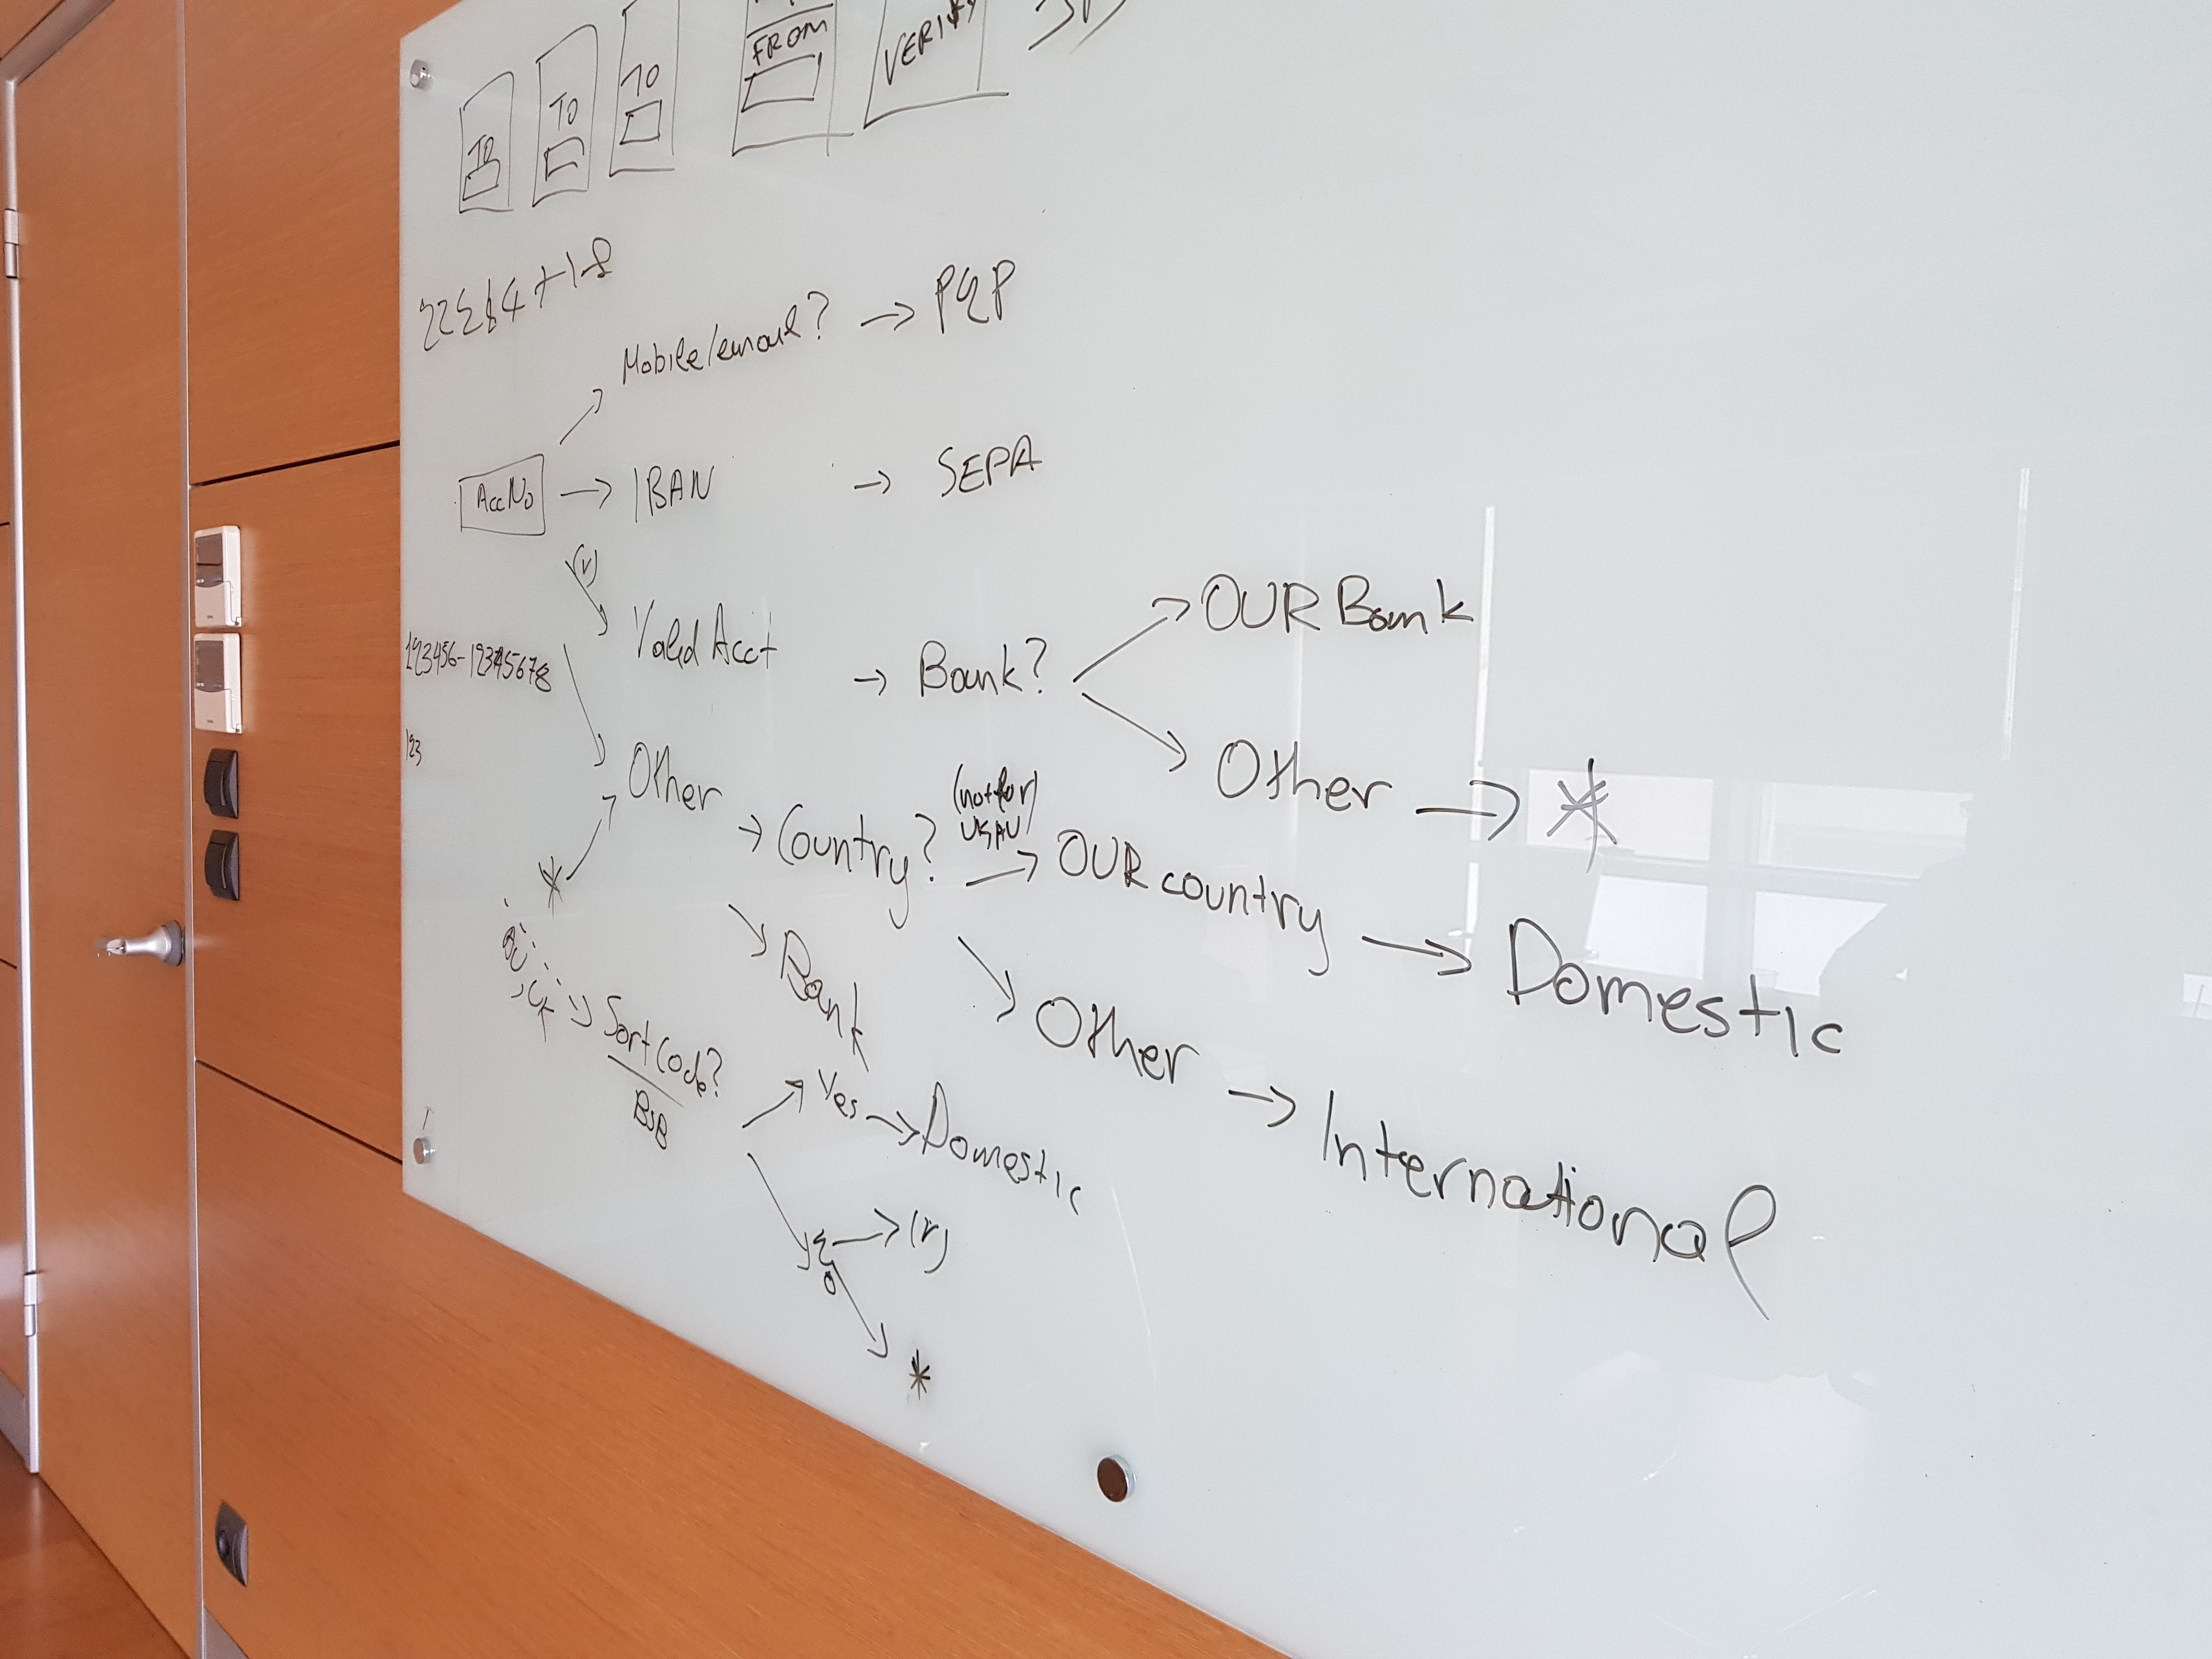 TO
TO
TO
FROM
VERIFY
Mobile/email? → P2P
AccNo → IBAN → SEPA
(v)
Valid Acct → Bank? → OUR Bank
123456-12345678
123
Other → *
Other → Country? (not for) UK, AU → OUR country → Domestic
*
Bank
Other → International
Sort Code?
BSB
Yes → Domestic
→ (v)
*